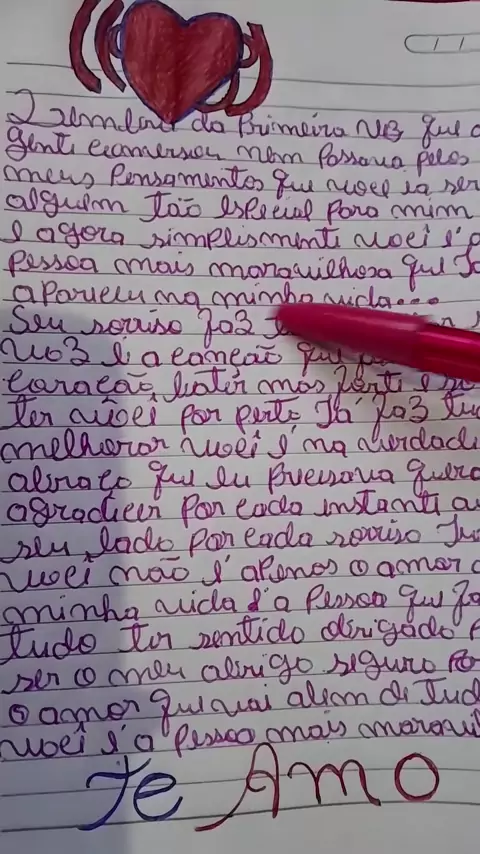 Lembra da Primeira vez que a
gente conversou nem Passava pelos
meus Pensamentos que você ia ser
alguém Tão especial Para mim
e agora simplismente você é a
Pessoa mais maravilhosa que Já
apareceu na minha vida...
Seu sorriso faz
voz é a canção que
coração bater mas forte e
ter você por perto Já faz tud
melhorar você é na verdade
abraço que eu Precisava quero
agradecer Por cada instante ao
seu lado Por cada sorriso
você não é apenas o amor d
minha vida é a Pessoa que faz
Tudo ter sentido obrigado P
ser o meu abrigo seguro Po
o amor que vai alem de Tud
você é a Pessoa mais maravil
Te Amo